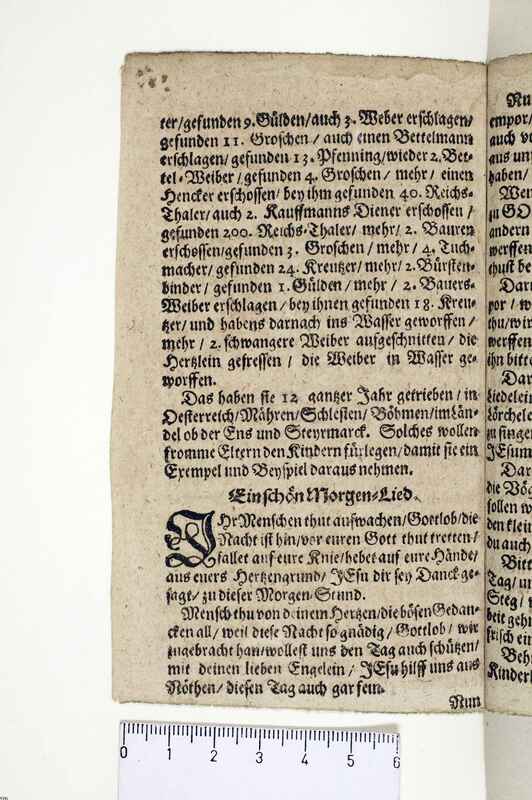 ter/gefunden 9. Gülden/auch 3. Weber erschlagen/
gefunden 11. Groschen / auch einen Bettelmann
erschlagen/gefunden 13. Pfenning/wieder 2. Bet-
tel-Weiber/gefunden 4. Groschen / mehr / einen
Hencker erschossen/ bey ihm gefunden 40. Reichs-
Thaler/auch 2. Kauffmanns Diener erschossen /
gefunden 200. Reichs-Thaler/ mehr/ 2. Bauren
erschossen/gefunden 3. Groschen / mehr / 4. Tuch-
macher/ gefunden 24. Kreutzer/ mehr/ 2. Bürsten-
binder/ gefunden 1. Gülden / mehr / 2. Bauers-
Weiber erschlagen/ bey ihnen gefunden 18. Kreu-
tzer/ und habens darnach ins Wasser geworffen /
mehr / 2. schwangere Weiber aufgeschnitten / die
Hertzlein gefressen / die Weiber in Wasser ge-
worffen.
Das haben sie 12 gantzer Jahr getrieben / in
Oesterreich/Mähren/Schlesien/ Böhmen/im Län-
del ob der Ens und Steyrmarck. Solches wollen
fromme Eltern den Kindern fürlegen/damit sie ein
Exempel und Beyspiel daraus nehmen.
Ein schön Morgen-Lied.
IHr Menschen thut aufwachen/Gottlob/die
Nacht ist hin/vor euren Gott thut tretten/
fallet auf eure Knie/hebet auf eure Hände/
aus euers Hertzengrund/ JEsu dir sey Danck ge-
sagt/ zu dieser Morgen-Stund.
Mensch thu von deinem Hertzen/die bösen Gedan-
cken all/ weil diese Nacht so gnädig/ Gottlob/ wir
zugebracht han/wollest uns den Tag auch schützen/
mit deinen lieben Engelein/ JEsu hilff uns aus
Nöthen/ diesen Tag auch gar fein.
Nun
Nu
empor/
auch v
aus un
haben/
Wen
zu GO
andern
werffen
thust be
Dar
vor / w
thu/wir
werffen
ihn bitt
Dar
Liedelei
Lörchele
zu singe
JEsum
Dar
die Vög
sollen w
den klei
du auch
Bitt
Tag/ un
Steg/ w
beit gehn
frisch ein
Beh
Kinderl
0 1 2 3 4 5 6